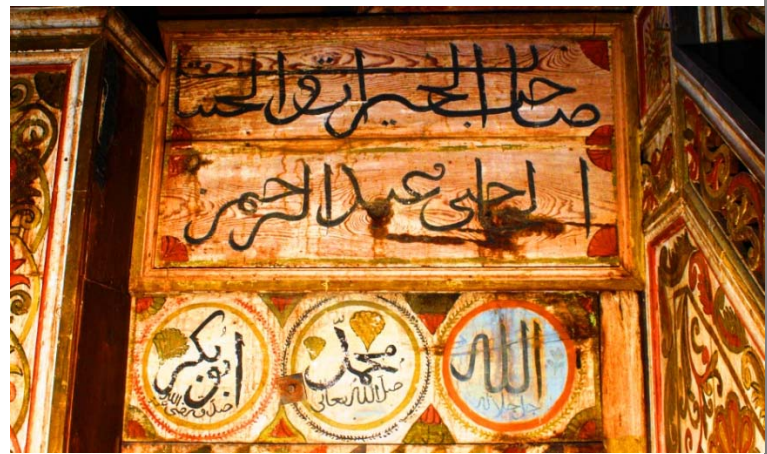 صاحب الخيرات والحسنات
عبد الرحمن
الله
جل جلاله
محمد
صلى الله تعالى
ابو بكر
رضي الله